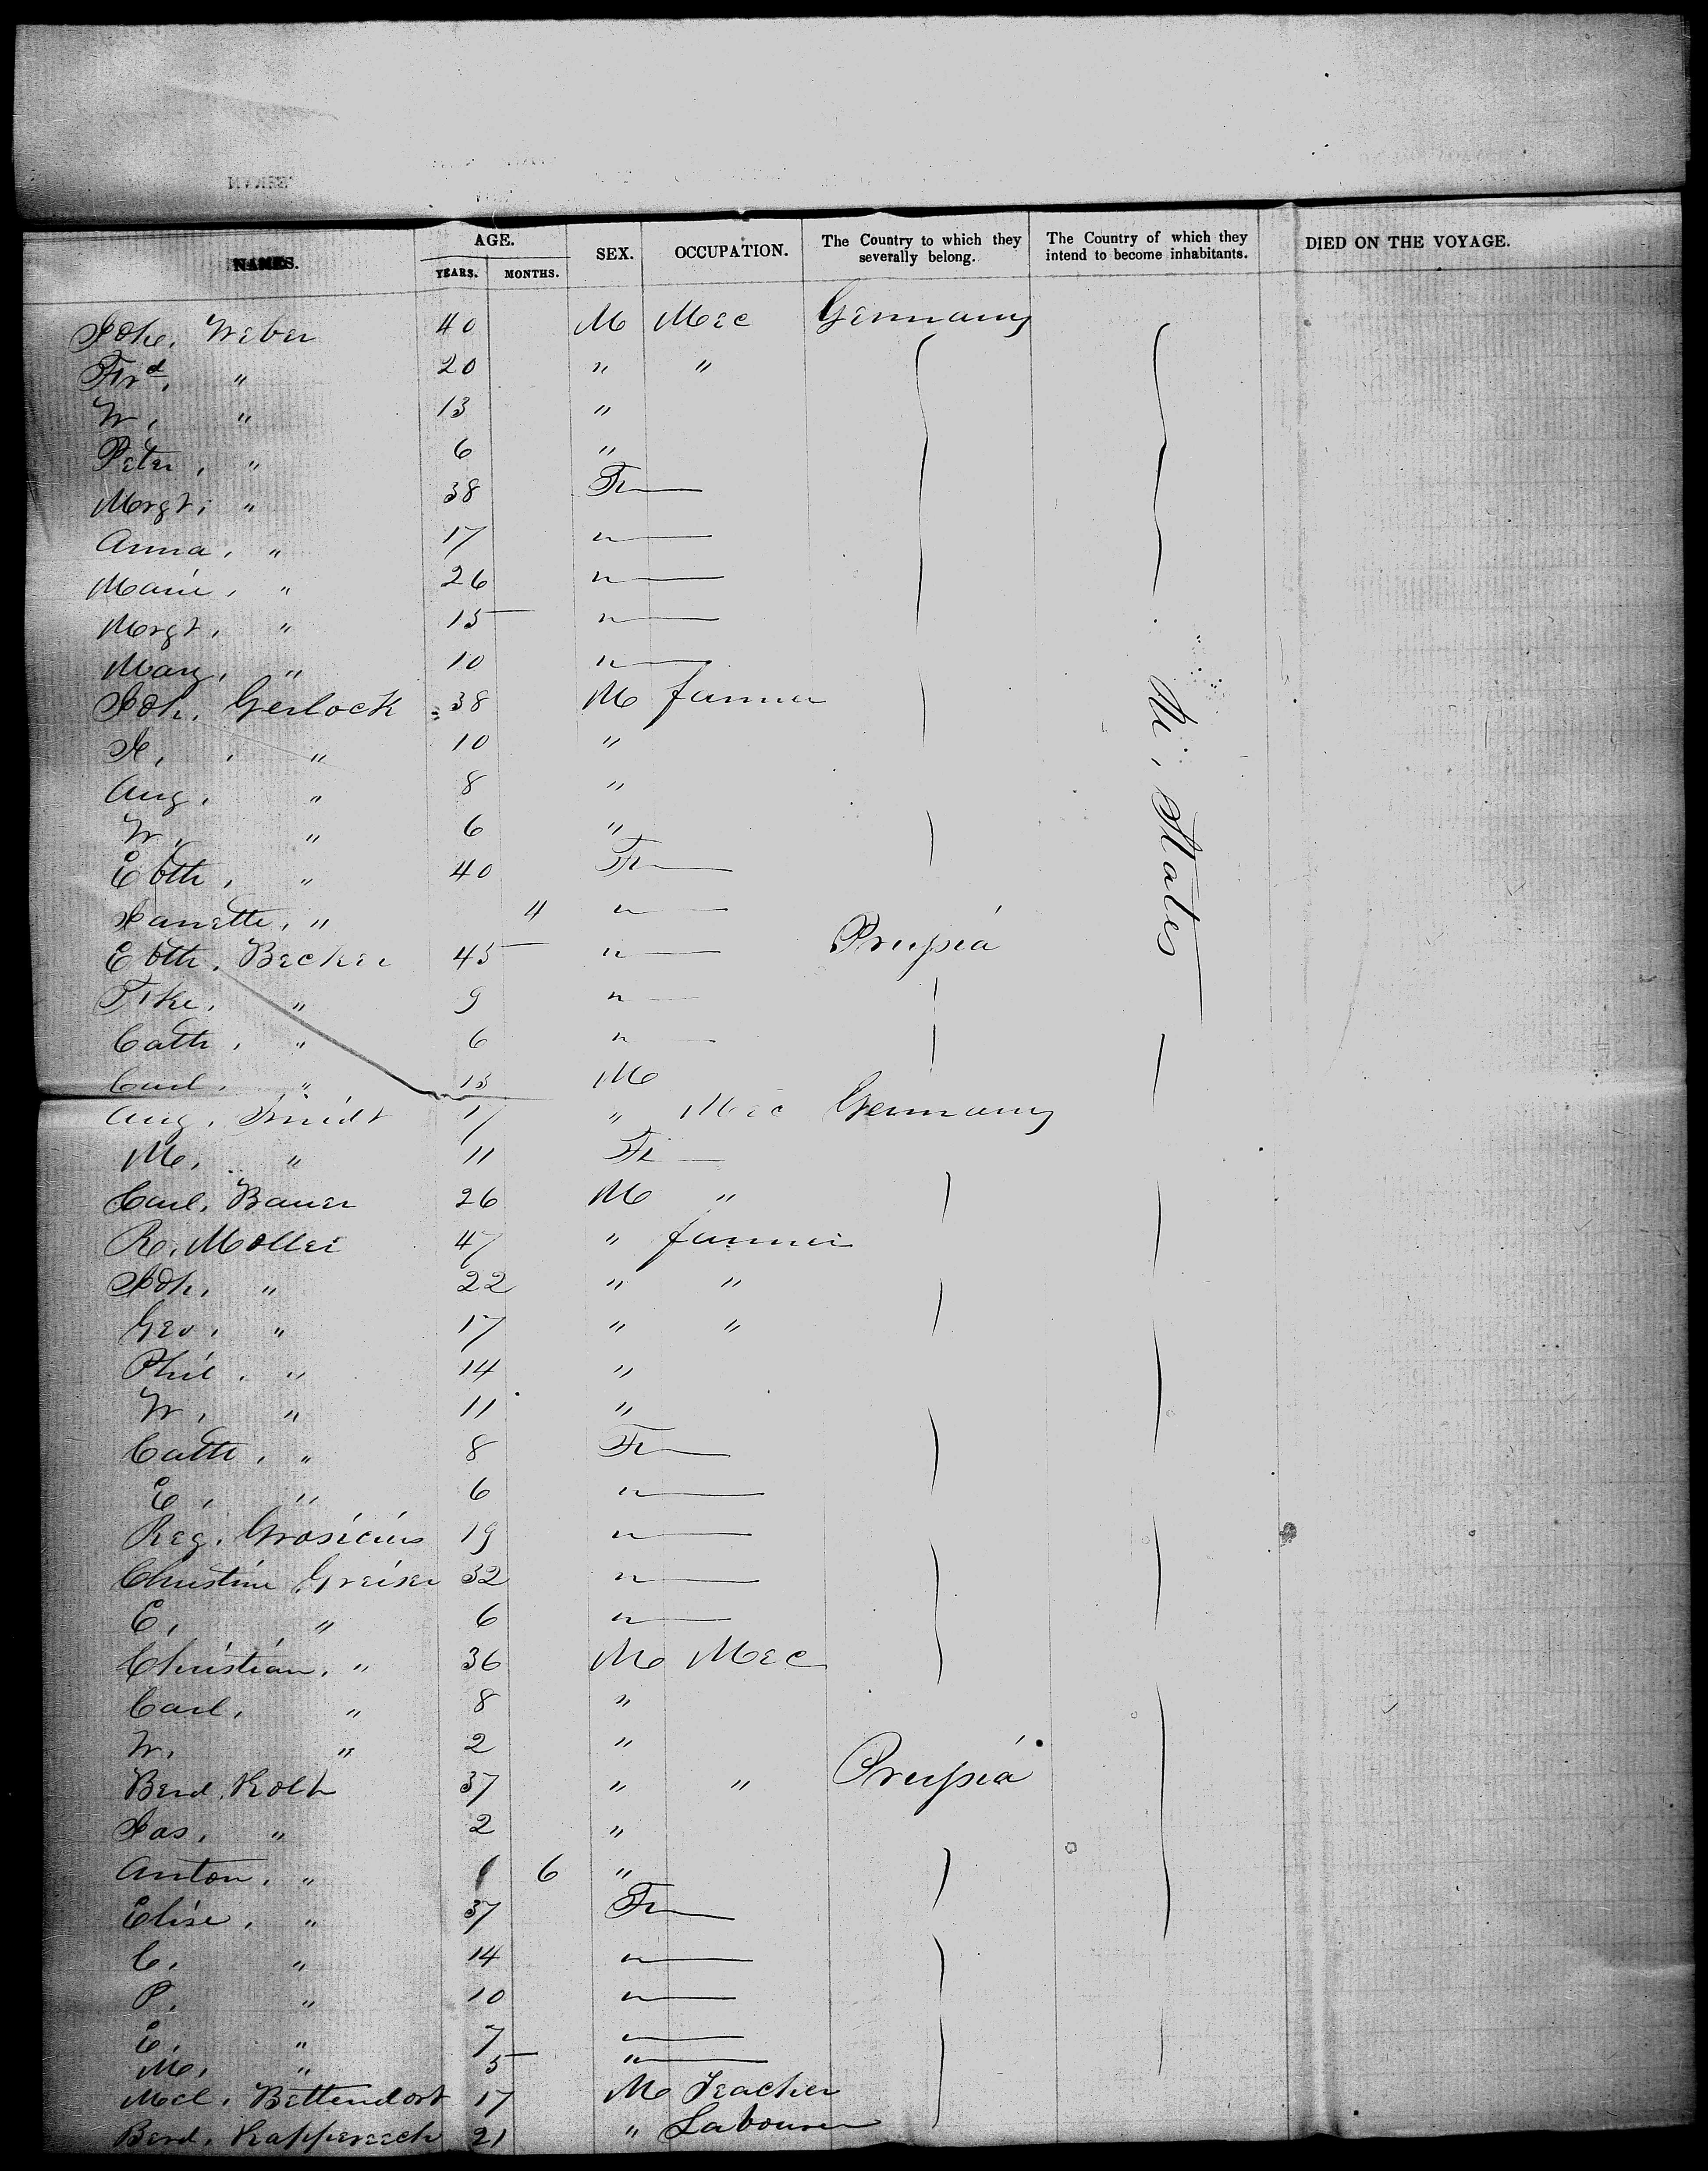 NAMES. AGE. YEARS. MONTHS. SEX. OCCUPATION. The Country to which they severally belong. The Country of which they intend to become inhabitants. DIED ON THE VOYAGE.
Joh. Weber 40 M Mec Germany
Frd. " 20 " "
W. " 13 "
Peter, " 6 "
Mrgt. " 38 Fe —
Anna. " 17 " —
Marie, " 26 " —
Mrgt. " 15 " —
Mary, " 10 " —
Joh. Gerlock 38 M farmer
J. " 10 "
Aug. " 8 "
W. " 6 "
Ebth. " 40 Fe —
Janette, " 4 " —
Ebth. Becker 45 " — Prussia
Frke. " 9 " —
Cath. " 6 " —
Carl. " 13 M
Aug. Smidt 17 " Mec Germany
M. " 11 Fe —
Carl. Bauer 26 M "
R. Moller 47 " farmer
Joh. " 22 " "
Geo. " 17 " "
Phil. " 14 "
W. " 11 "
Cath. " 8 Fe —
E. " 6 " —
Reg. 19 " —
Christine Greiser 32 " —
E. " 6 " —
Christian. " 36 M Mec
Carl. " 8 "
W. " 2 "
Bend. Kolb 37 " " Prussia
Jas. " 2 "
Anton. " 6 "
Elise. " 37 Fe —
C. " 14 " —
P. " 10 " —
E. " 7 " —
M. " 5 " —
Mcl. Bettendorf 17 M Teacher
Bend. 21 " Labourer
U. States